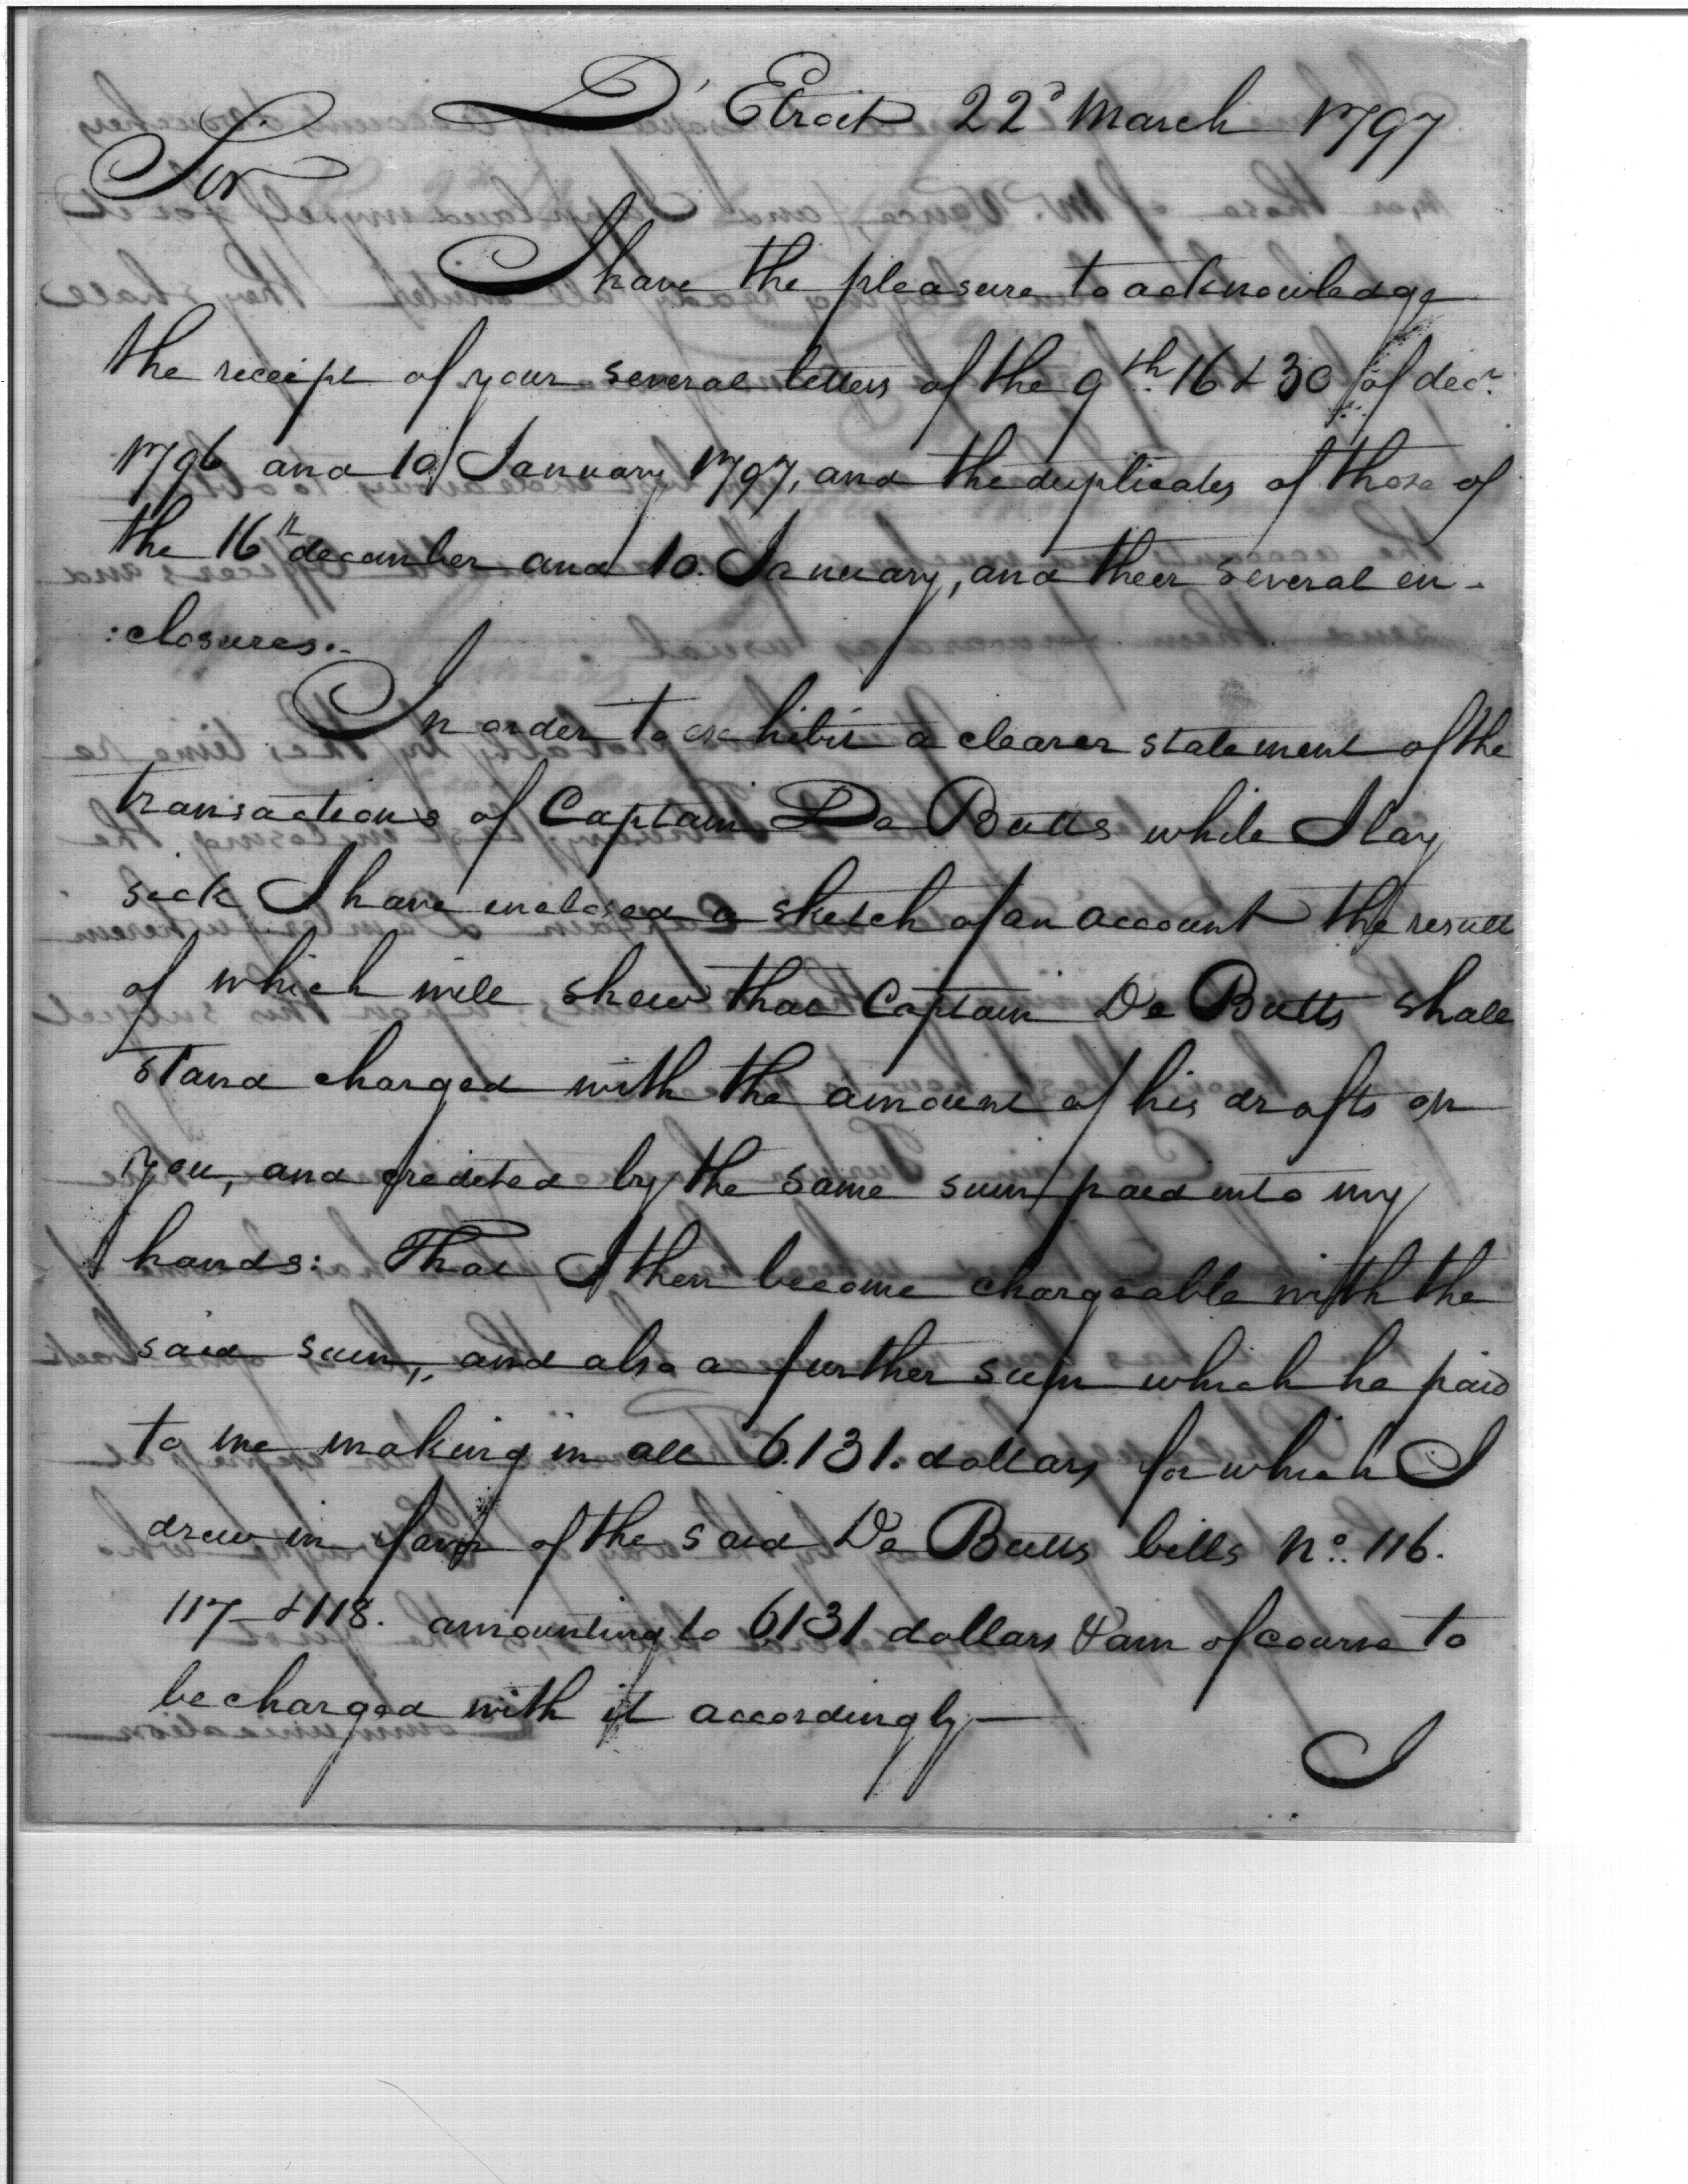 D'Etroit 22d March 1797
Sir
I have the pleasure to acknowledge
the receipt of your several letters of the 9th. 16 & 30 of decr.
1796 and 10 January 1797, and the duplicates of those of
the 16th december and 10. January, and their several en-
:closures.-
In order to exhibit a clearer statement of the
transactions of Captain De Butts while I lay
sick I have enclosed a sketch of an account the result
of which will shew that Captain De Butts shall
stand charged with the amount of his drafts on
you, and credited by the same sum paid into my
hands: That I then become chargeable with the
said sum, and also a further sum which he paid
to me making in all 6.131. dollars for which I
drew in favor of the said De Butts bills No. 116.
117 & 118. amounting to 6131 dollars & am of course to
be charged with it accordingly—
I